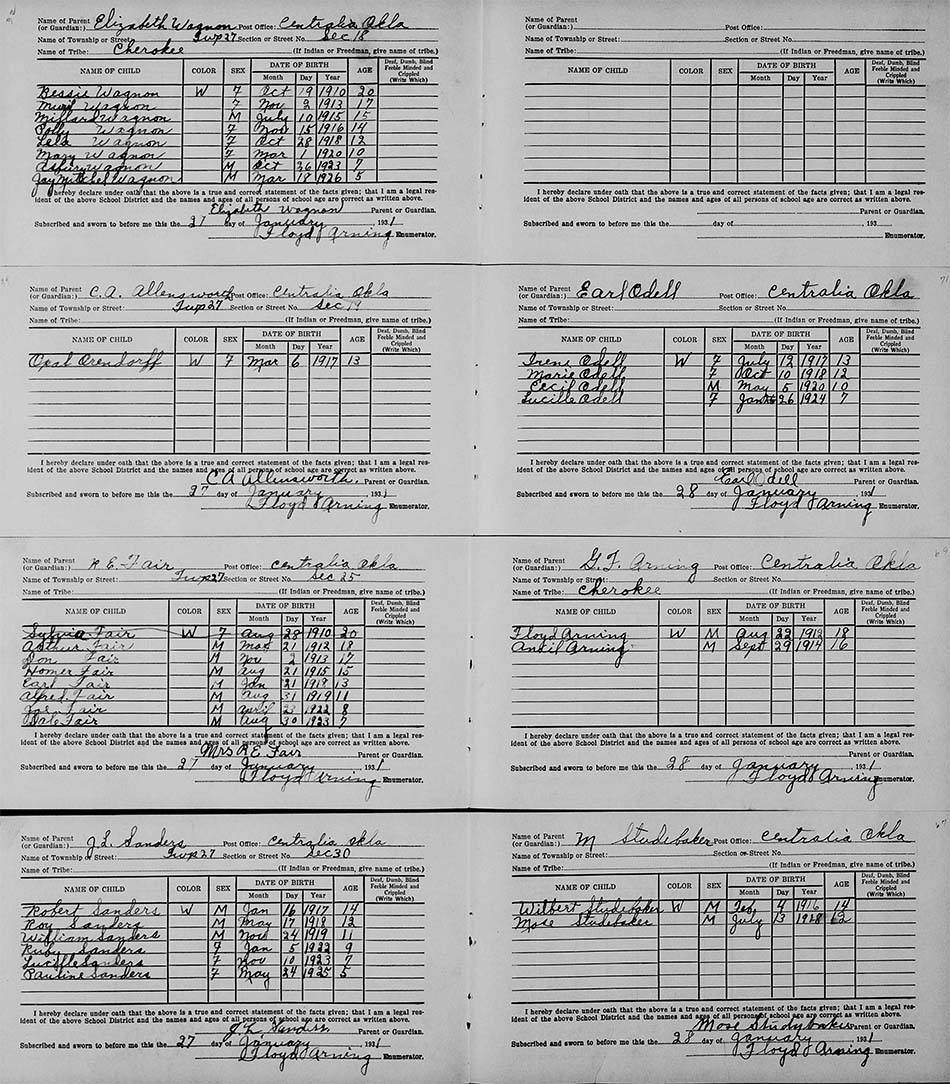 Name of Parent (or Guardian): Elizabeth Wagnon Post Office: Centralia Okla
Name of Township or Street: Twp 27 Section or Street No. Sec 18
Name of Tribe: Cherokee (If Indian or Freedman, give name of tribe.)
NAME OF CHILD COLOR SEX DATE OF BIRTH Month Day Year AGE Deaf, Dumb, Blind Feeble Minded and Crippled (Write Which)
Bessie Wagnon W F Oct 19 1910 20
Wagnon F Nov 2 1913 17
Millard Wagnon M July 10 1915 15
Polly Wagnon F Nov 15 1916 14
Lela Wagnon F Oct 28 1918 12
Mary Wagnon F Mar 1 1920 10
Asbury Wagnon M Oct 26 1923 7
Jay Mitchel Wagnon M Mar 18 1926 5
I hereby declare under oath that the above is a true and correct statement of the facts given; that I am a legal res-
ident of the above School District and the names and ages of all persons of school age are correct as written above.
Elizabeth Wagnon Parent or Guardian.
Subscribed and sworn to before me this the 27 day of January 1931
Floyd Arning Enumerator.
Name of Parent (or Guardian): Post Office:
Name of Township or Street: Section or Street No.
Name of Tribe: (If Indian or Freedman, give name of tribe.)
NAME OF CHILD COLOR SEX DATE OF BIRTH Month Day Year AGE Deaf, Dumb, Blind Feeble Minded and Crippled (Write Which)
I hereby declare under oath that the above is a true and correct statement of the facts given; that I am a legal res-
ident of the above School District and the names and ages of all persons of school age are correct as written above.
Parent or Guardian.
Subscribed and sworn to before me this the day of , 193
Enumerator.
Name of Parent (or Guardian): C.A. Allensworth Post Office: Centralia Okla
Name of Township or Street: Twp 27 Section or Street No. Sec 19
Name of Tribe: (If Indian or Freedman, give name of tribe.)
NAME OF CHILD COLOR SEX DATE OF BIRTH Month Day Year AGE Deaf, Dumb, Blind Feeble Minded and Crippled (Write Which)
Opal Orendorff W F Mar 6 1917 13
I hereby declare under oath that the above is a true and correct statement of the facts given; that I am a legal res-
ident of the above School District and the names and ages of all persons of school age are correct as written above.
C A Allensworth. Parent or Guardian.
Subscribed and sworn to before me this the 27 day of January 1931
Floyd Arning Enumerator.
71
Name of Parent (or Guardian): Earl Odell Post Office: Centralia Okla
Name of Township or Street: Section or Street No.
Name of Tribe: (If Indian or Freedman, give name of tribe.)
NAME OF CHILD COLOR SEX DATE OF BIRTH Month Day Year AGE Deaf, Dumb, Blind Feeble Minded and Crippled (Write Which)
Irene Odell W F July 12 1917 13
Marie Odell F Oct 10 1918 12
Cecil Odell M May 5 1920 10
Lucille Odell F Jan 26 1924 7
I hereby declare under oath that the above is a true and correct statement of the facts given; that I am a legal res-
ident of the above School District and the names and ages of all persons of school age are correct as written above.
Earl Odell Parent or Guardian.
Subscribed and sworn to before me this the 28 day of January 1931
Floyd Arning Enumerator.
Name of Parent (or Guardian): R E. Fair Post Office: Centralia Okla
Name of Township or Street: Twp 27 Section or Street No. Sec 25
Name of Tribe: (If Indian or Freedman, give name of tribe.)
NAME OF CHILD COLOR SEX DATE OF BIRTH Month Day Year AGE Deaf, Dumb, Blind Feeble Minded and Crippled (Write Which)
Sylvia Fair W F Aug 28 1910 20
Arthur Fair M Mar 21 1912 18
Don Fair M Nov 2 1913 17
Homer Fair M Aug 21 1915 15
Earl Fair M Jan 21 1918 13
Alfred Fair M Aug 31 1919 11
Joe Fair M April 23 1922 8
Dale Fair M Aug 30 1923 7
I hereby declare under oath that the above is a true and correct statement of the facts given; that I am a legal res-
ident of the above School District and the names and ages of all persons of school age are correct as written above.
Mrs R E Fair Parent or Guardian.
Subscribed and sworn to before me this the 27 day of January , 1931
Floyd Arning Enumerator.
Name of Parent (or Guardian): G. F. Arning Post Office: Centralia Okla
Name of Township or Street: Section or Street No.
Name of Tribe: Cherokee (If Indian or Freedman, give name of tribe.)
NAME OF CHILD COLOR SEX DATE OF BIRTH Month Day Year AGE Deaf, Dumb, Blind Feeble Minded and Crippled (Write Which)
Floyd Arning W M Aug 22 1912 18
Ancil Arning M Sept 29 1914 16
I hereby declare under oath that the above is a true and correct statement of the facts given; that I am a legal res-
ident of the above School District and the names and ages of all persons of school age are correct as written above.
Parent or Guardian.
Subscribed and sworn to before me this the 28 day of January , 1931
Floyd Arning Enumerator.
Name of Parent (or Guardian): J. L. Sanders Post Office: Centralia Okla
Name of Township or Street: Twp 27 Section or Street No. Sec 30
Name of Tribe: (If Indian or Freedman, give name of tribe.)
NAME OF CHILD COLOR SEX DATE OF BIRTH Month Day Year AGE Deaf, Dumb, Blind Feeble Minded and Crippled (Write Which)
Robert Sanders W M Jan 16 1917 14
Roy Sanders M May 17 1918 12
William Sanders M Nov 24 1919 11
Ruby Sanders F Jan 5 1922 9
Lucille Sanders F Nov 10 1923 7
Pauline Sanders F May 24 1925 5
I hereby declare under oath that the above is a true and correct statement of the facts given; that I am a legal res-
ident of the above School District and the names and ages of all persons of school age are correct as written above.
J. L. Sanders Parent or Guardian.
Subscribed and sworn to before me this the 27 day of January , 1931
Floyd Arning Enumerator.
Name of Parent (or Guardian): M Studebaker Post Office: Centralia Okla
Name of Township or Street: Section or Street No.
Name of Tribe: (If Indian or Freedman, give name of tribe.)
NAME OF CHILD COLOR SEX DATE OF BIRTH Month Day Year AGE Deaf, Dumb, Blind Feeble Minded and Crippled (Write Which)
Wilbert Studebaker W M Feb 4 1916 14
Mose Studebaker M July 13 1918 12
I hereby declare under oath that the above is a true and correct statement of the facts given; that I am a legal res-
ident of the above School District and the names and ages of all persons of school age are correct as written above.
Mose Studybaker Parent or Guardian.
Subscribed and sworn to before me this the 28 day of January , 1931
Floyd Arning Enumerator.